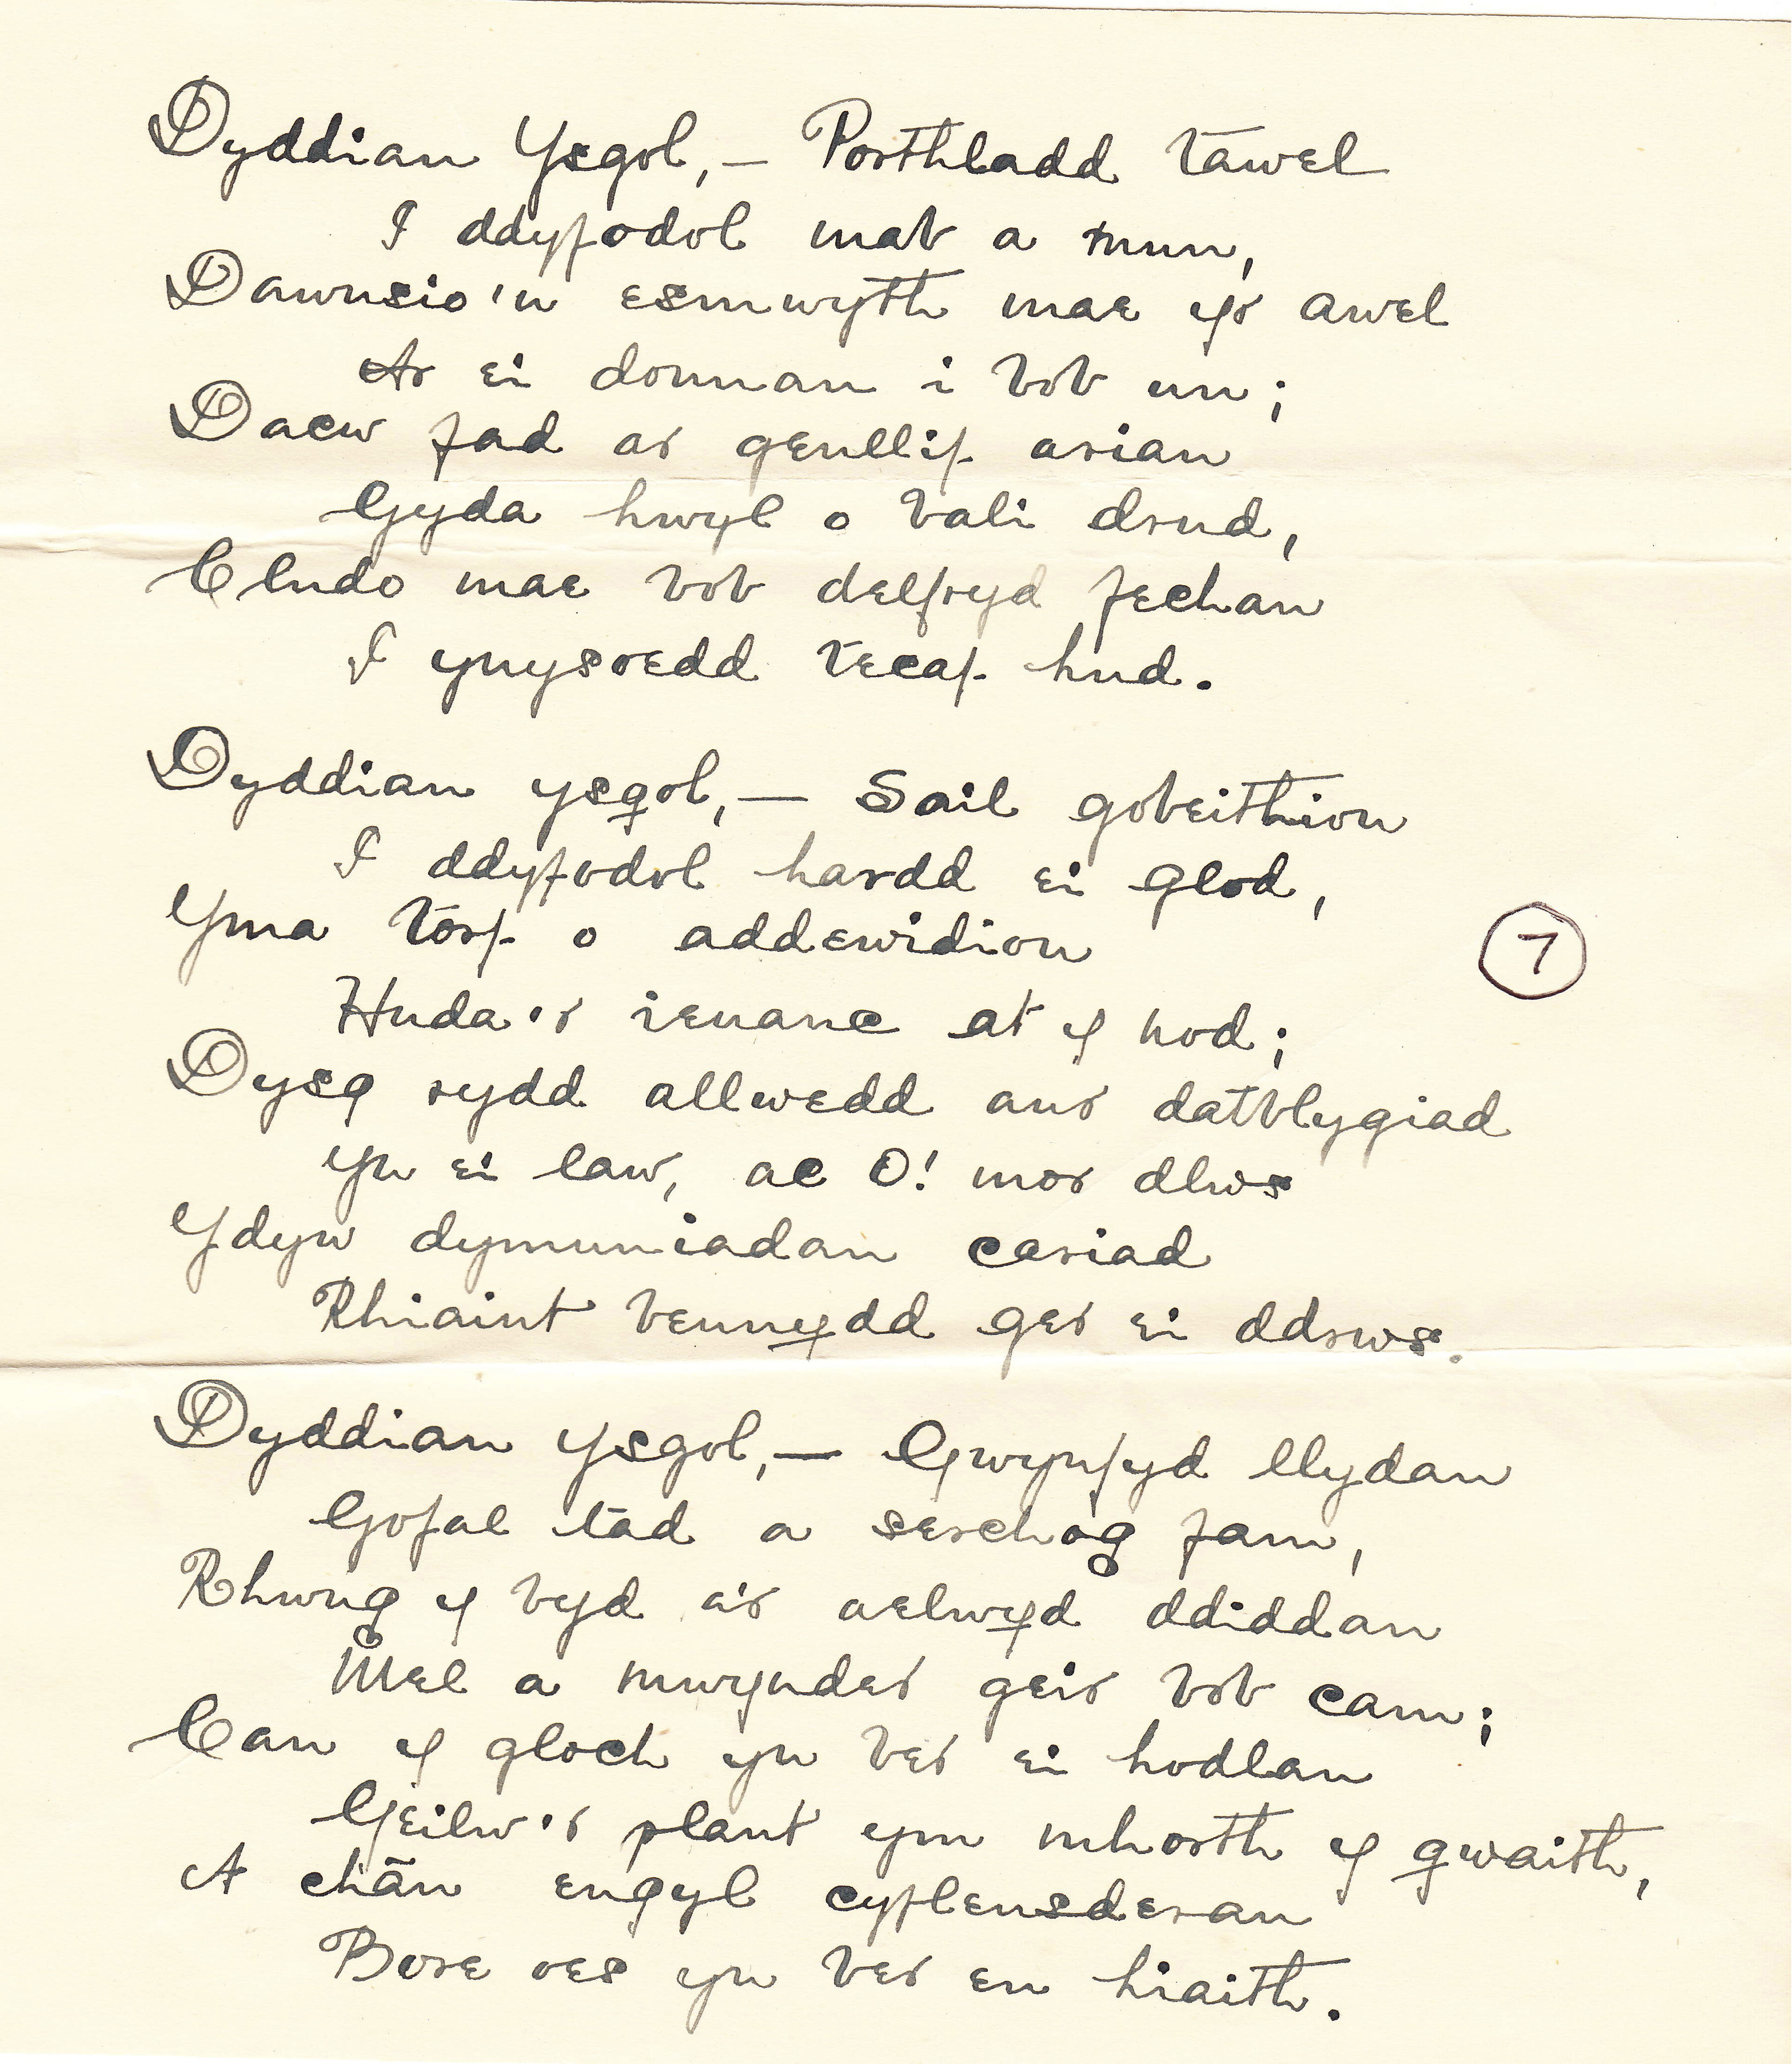 Dyddiau Ysgol, — Porthladd tawel
I ddyfodol mab a mun,
Dawnsio'n esmwyth mae yr awel
Ar ei donnau i bob un;
Dacw fad ar genllif arian
Gyda hwyl o bali drud,
Cludo mae bob delfryd fechan
I ynysoedd tecaf hud.
Dyddiau ysgol, — Sail gobeithion
I ddyfodol hardd ei glod,
Yma torf o addewidion
Huda'r ieuanc at y nod;
Dysg rydd allwedd aur datblygiad
Yn ei law, ac O! mor dlws
Ydyw dymuniadau cariad
Rhiaint beunydd ger ei ddrws.
Dyddiau Ysgol, — Gwynfyd llydan
Gofal tad a serchog fam,
Rhwng y byd a'r aelwyd ddiddan
Mel a mwynder geir bob cam;
Can y gloch yn ber ei hodlau
Geilw'r plant ym mhorth y gwaith,
A chân engyl cyfleusderau
Bore oes yn ber eu hiaith.
7